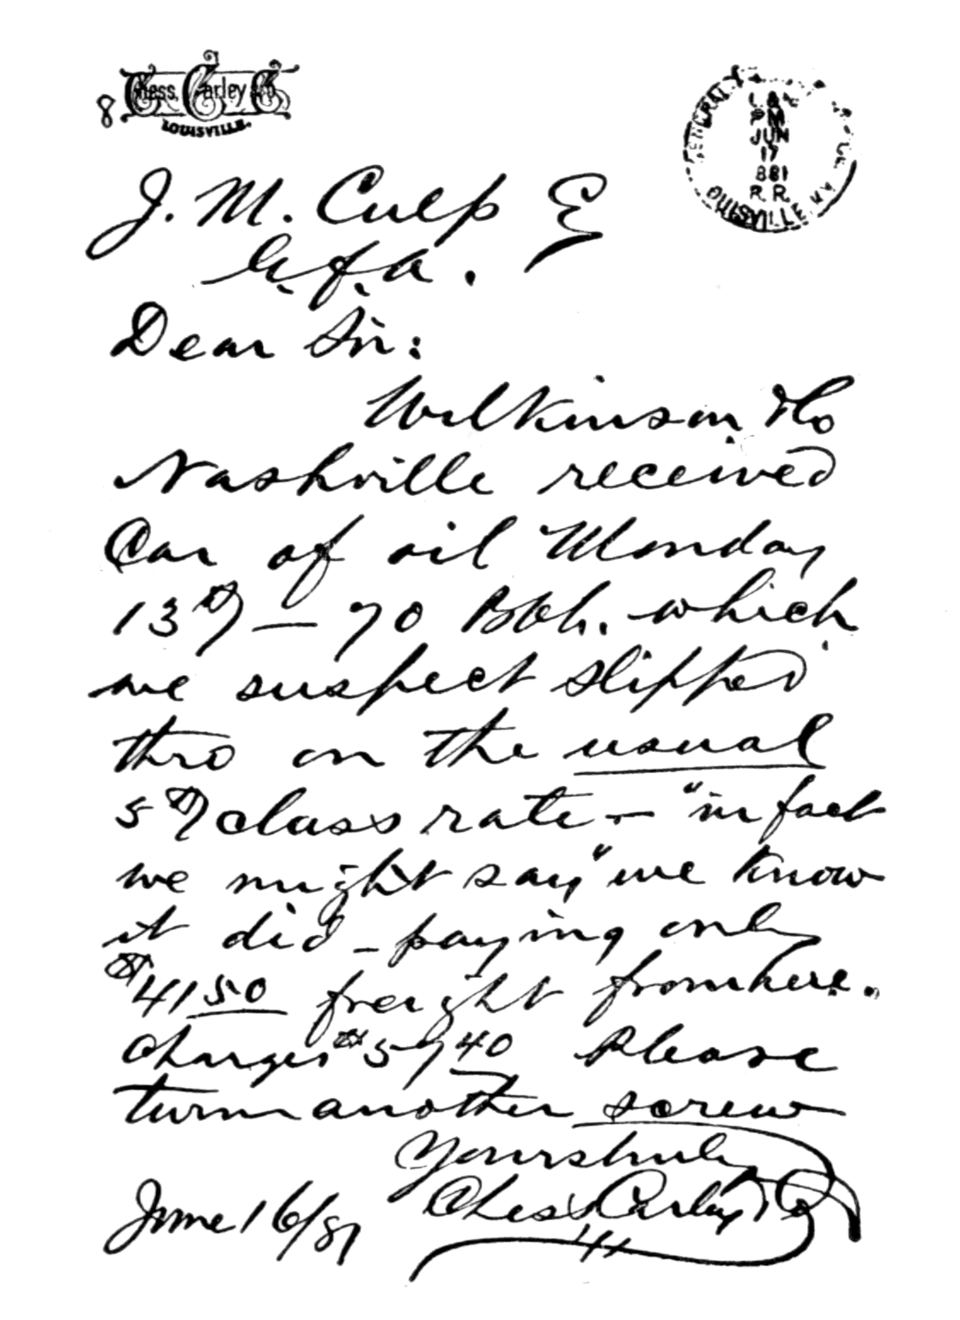 Chess, Carley Co.
LOUISVILLE.
8
GENERAL
PM
JUN
17
881
R.R.
LOUISVILLE KY
J. M. Culp E
G. f. a.
Dear Sir:
Wilkinson & Co
Nashville received
Car of oil Monday
13th — 70 Bbls. which
we suspect slipped
thro on the usual
5th class rate — "in fact
we might say" we know
it did — paying only
$41 50 freight from here.
Charges $57 40 Please
turn another screw
Yours truly
Chess Carley Co
June 16/81